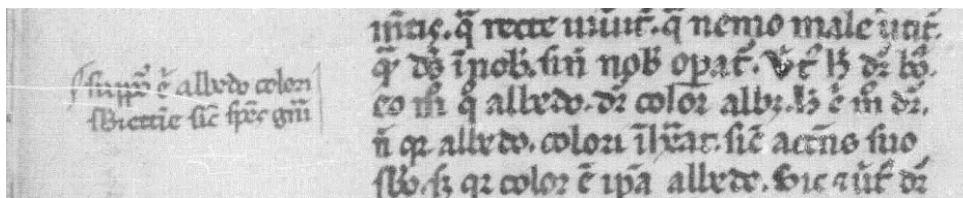 suppo᷑ ē albedo colori
sb̄iectiue sic̄ spēs gn̄i
m̄tis. q̄ recte uiuit᷑. q̄ nemo male utit᷑.
q̄ᵃ ds̄ ī nob̄. sin̄ nob̄ op̄at᷑. Vt᷑ h̄ dr̄ bō.
eo m̊ q̊ albedo. dr̄ color albꝰ. h̄ ē m̊ dr̄.
n̄ qꝛ albedo. colori īh̄eat. sic̄ accn̄s suo
sb̄o. sꝫ qꝛ color ē ip̄a albedo. Hic ⁊ ut᷑ dr̄